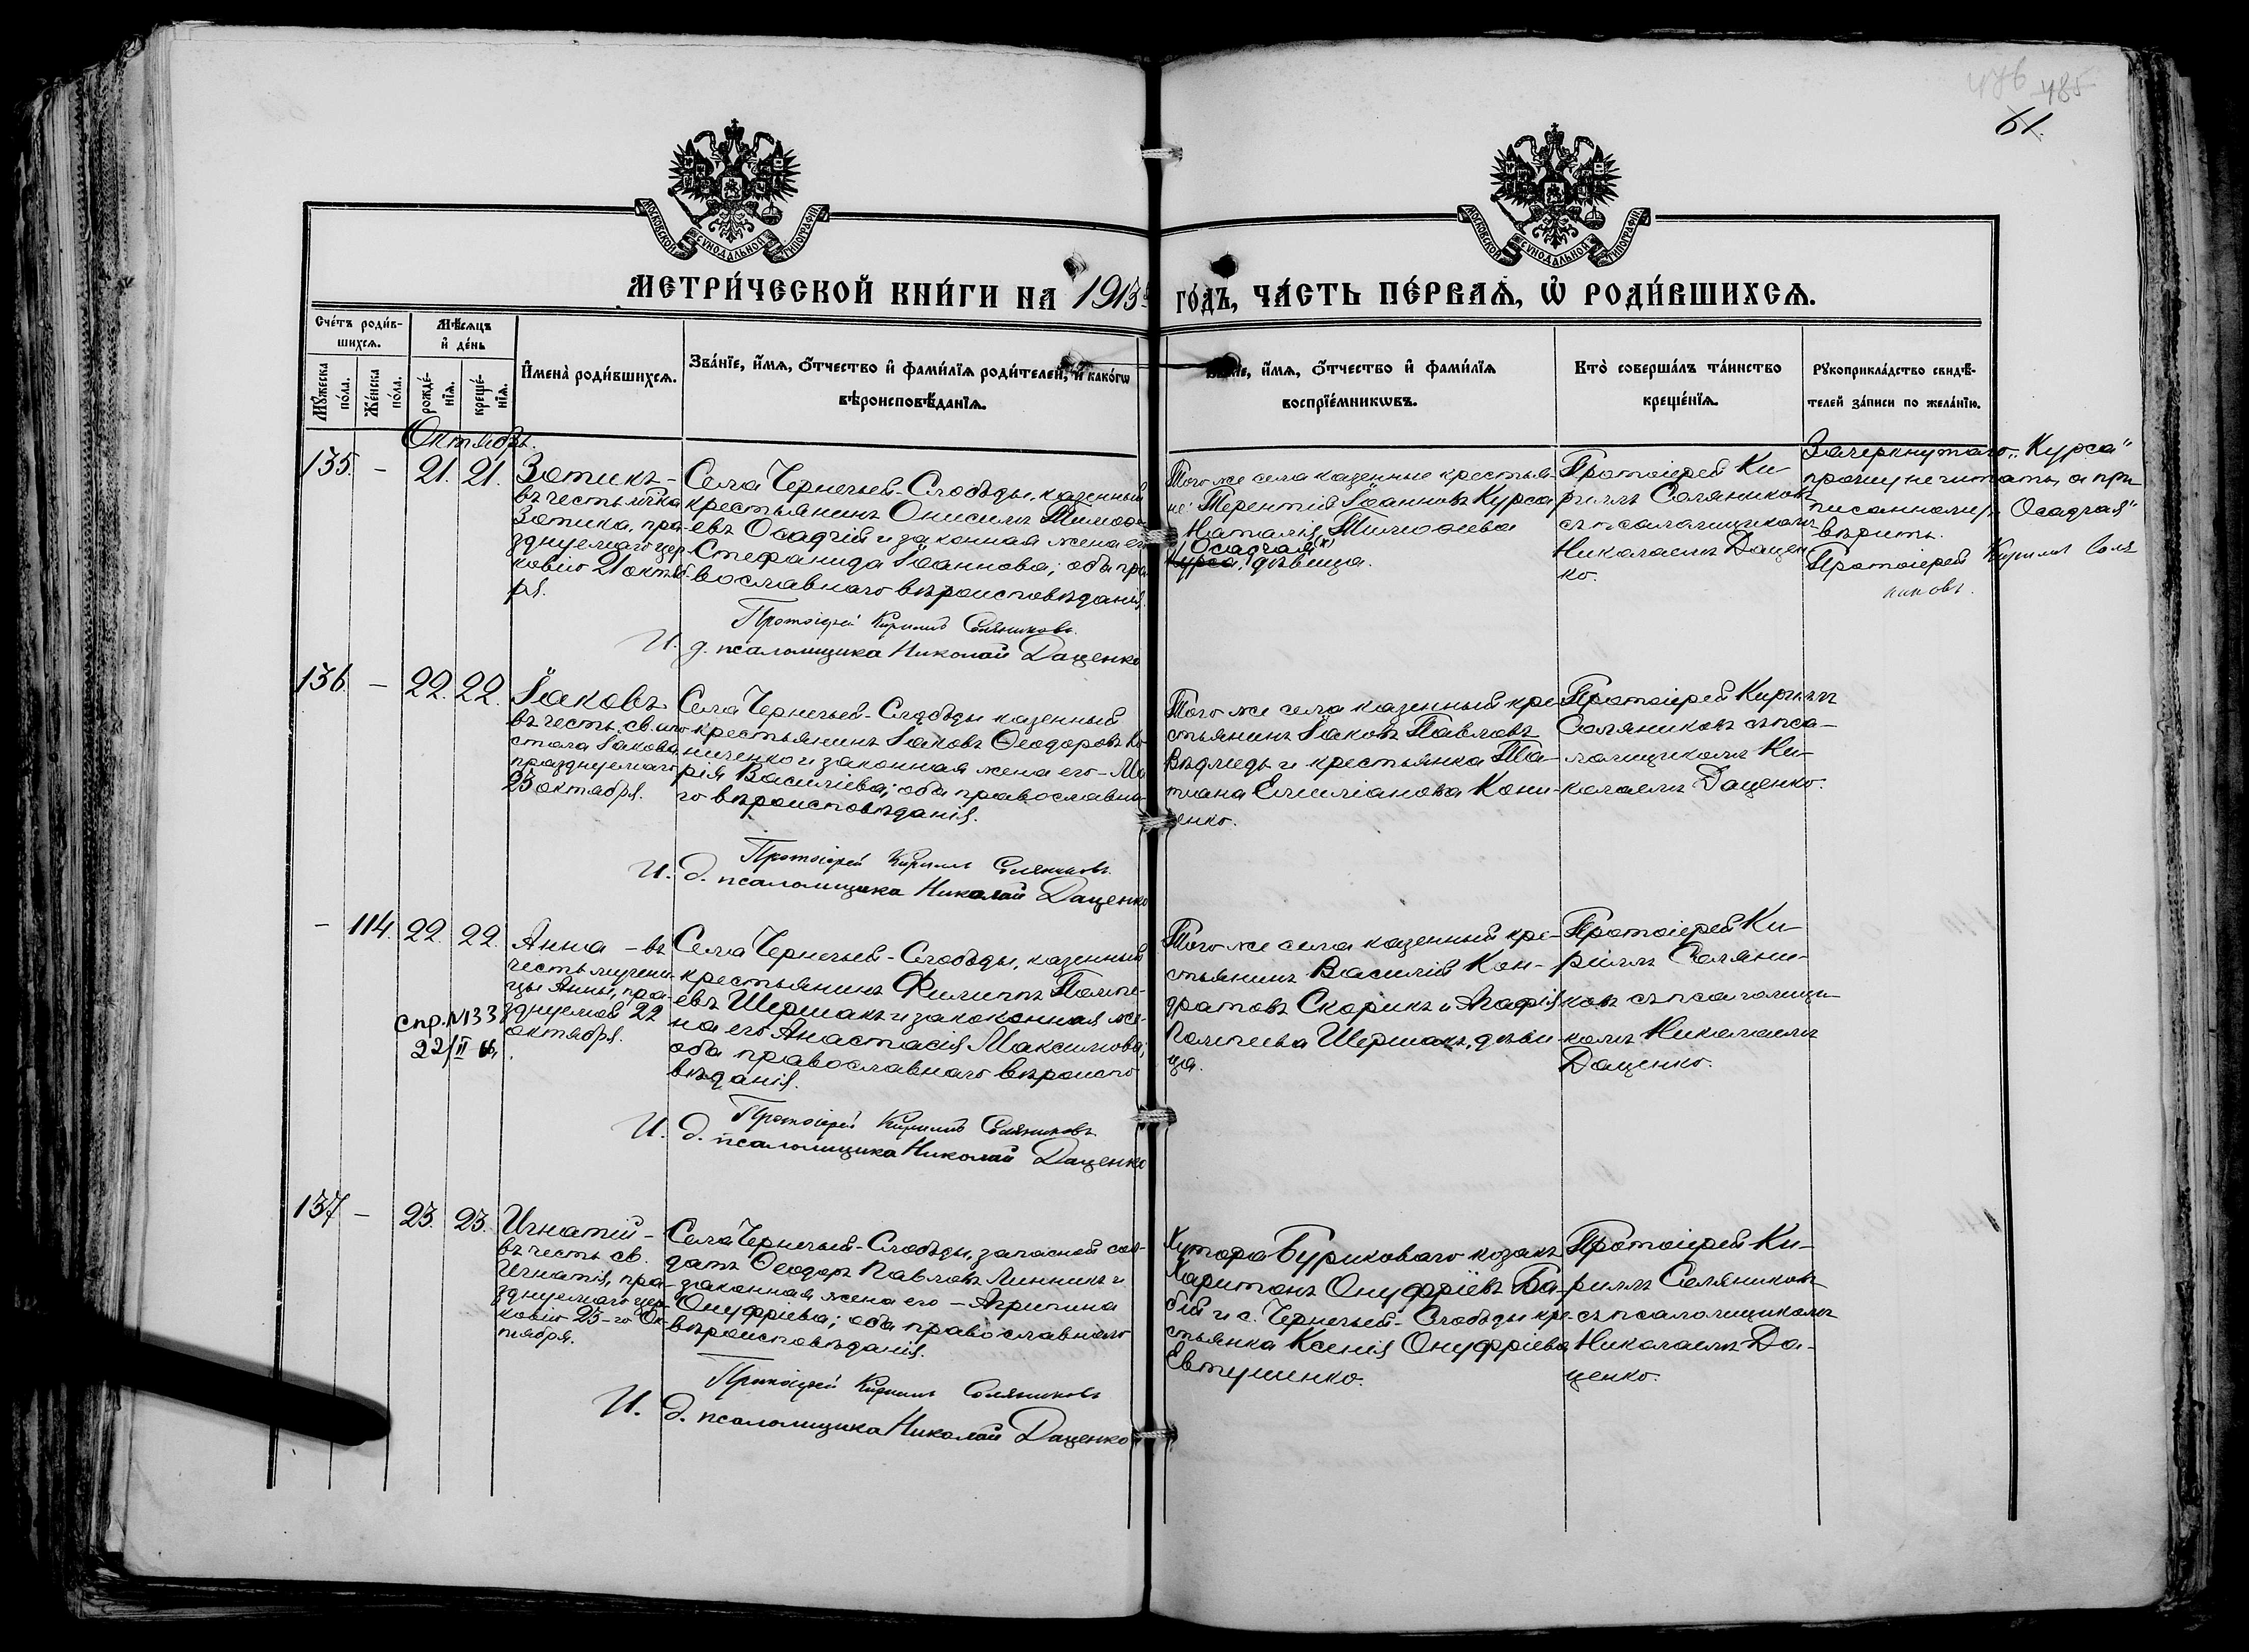 476 485
61.
МОСКОВСКОЙ СѴНОДАЛЬНОЙ ТИПОГРАФІИ
МОСКОВСКОЙ СѴНОДАЛЬНОЙ ТИПОГРАФІИ
МЕТРИ́ЧЕСКОЙ КНИ́ГИ НА 1913й ГО́ДЪ, ЧА́СТЬ ПЕ́РВАѦ, Ѡ РОДИ́ВШИХСѦ.
Сче́тъ роди́в-
шихсѧ.
Мꙋ́жеска
по́ла.
Же́нска
по́ла.
Мѣ́сѧцъ
и де́нь
рожде́-
нїѧ.
креще́-
нїѧ.
И҆мена̀ роди́вшихсѧ.
Зва́нїе, и҆́мѧ, ѻ҆́тчество и҆ фами́лїѧ роди́телей, и҆ како́гѡ
вѣроисповѣ́данїѧ.
Зва́нїе, и҆́мѧ, ѻ҆́тчество и҆ фами́лїѧ
воспрїе́мникѡвъ.
Кто̀ соверша́лъ та́инство
креще́нїѧ.
Рꙋкоприкла́дство свидѣ́-
телей за́писи по жела́нїю.
Октябрь.
135. - 21. 21.
Зотикъ -
въ честь м̃чка
Зотика, пра-
зднуемаго цер-
ковію 21 октяб-
ря.
Села Чернечьей-Слободы, казенный
крестьянинъ Онисимъ Тимоѳе-
евъ Осадчій и законная жена его
Стефанида Іоаннова; оба пра-
вославнаго вѣроисповѣданія.
Протоіерей Кириллъ Соляниковъ.
И. д. псаломщика Николай Даценко
Того же села казенные крестья-
не: Терентій Іоанновъ Курса
и Наталія Тимоѳеева
Осадчая (к)
Курса, дѣвица.
Протоіерей Ки-
риллъ Соляниковъ
съ псаломщикомъ
Николаемъ Дацен-
ко.
Зачеркнутаго „Курса"
прошу не читать, а при-
писанному „Осадчая"
вѣрить.
Протоіерей Кириллъ Соля-
никовъ.
136. - 22. 22.
Іаковъ
въ честь св. апо-
стола Іакова,
празднуемаго
23 октября.
Села Чернечьей-Слободы казенный
крестьянинъ Іаковъ Ѳеодоровъ Ко-
ниченко и законная жена его - Ма-
рія Василіева; оба православна-
го вѣроисповѣданія.
Протоіерей Кириллъ Соляниковъ.
И. д. псаломщика Николай Даценко
Того же села казенный кре-
стьянинъ Іаковъ Павловъ
Вѣдмедь и крестьянка Та-
тіана Емиліанова Кони-
ченко.
Протоіерей Кириллъ
Соляниковъ съ пса-
ломщикомъ Ни-
колаемъ Даценко.
- 114. 22. 22.
Анна - въ
честь мучени-
цы Анны, пра-
зднуемой 22
октября.
Спр. N133
22/II 66
Села Чернечьей-Слободы, казенный
крестьянинъ Филиппъ Помпе-
евъ Шершакъ и закоконная же-
на его Анастасія Максимова;
оба православнаго вѣроиспо-
вѣданія.
Протоіерей Кириллъ Соляниковъ
И. д. псаломщика Николай Даценко
Того же села казенный кре-
стьянинъ Василій Кон-
дратовъ Скорикъ и Агафія
Помпеева Шершакъ, дѣви-
ца.
Протоіерей Ки-
риллъ Соляни-
ковъ съ псаломщи-
комъ Николаемъ
Даценко.
137 - 23. 23.
Игнатій -
въ честь св.
Игнатія, пра-
зднуемаго цер-
ковію 23-го Ок-
тября.
Села Чернечьей-Слободы, запасной сол-
датъ Ѳеодоръ Павловъ Линникъ и
законная жена его - Агрипина
Онуфріева; оба православнаго
вѣроисповѣданія.
Протоіерей Кириллъ Соляниковъ
И. д. псаломщика Николай Даценко
Хутора Буриковаго козакъ
Харитонъ Онуфріевъ Ба-
бій и с. Чернечьей-Слободы кре-
стьянка Ксенія Онуфріева
Евтушенко.
Протоіерей Ки-
риллъ Соляниковъ
съ псаломщикомъ
Николаемъ Да-
ценко.